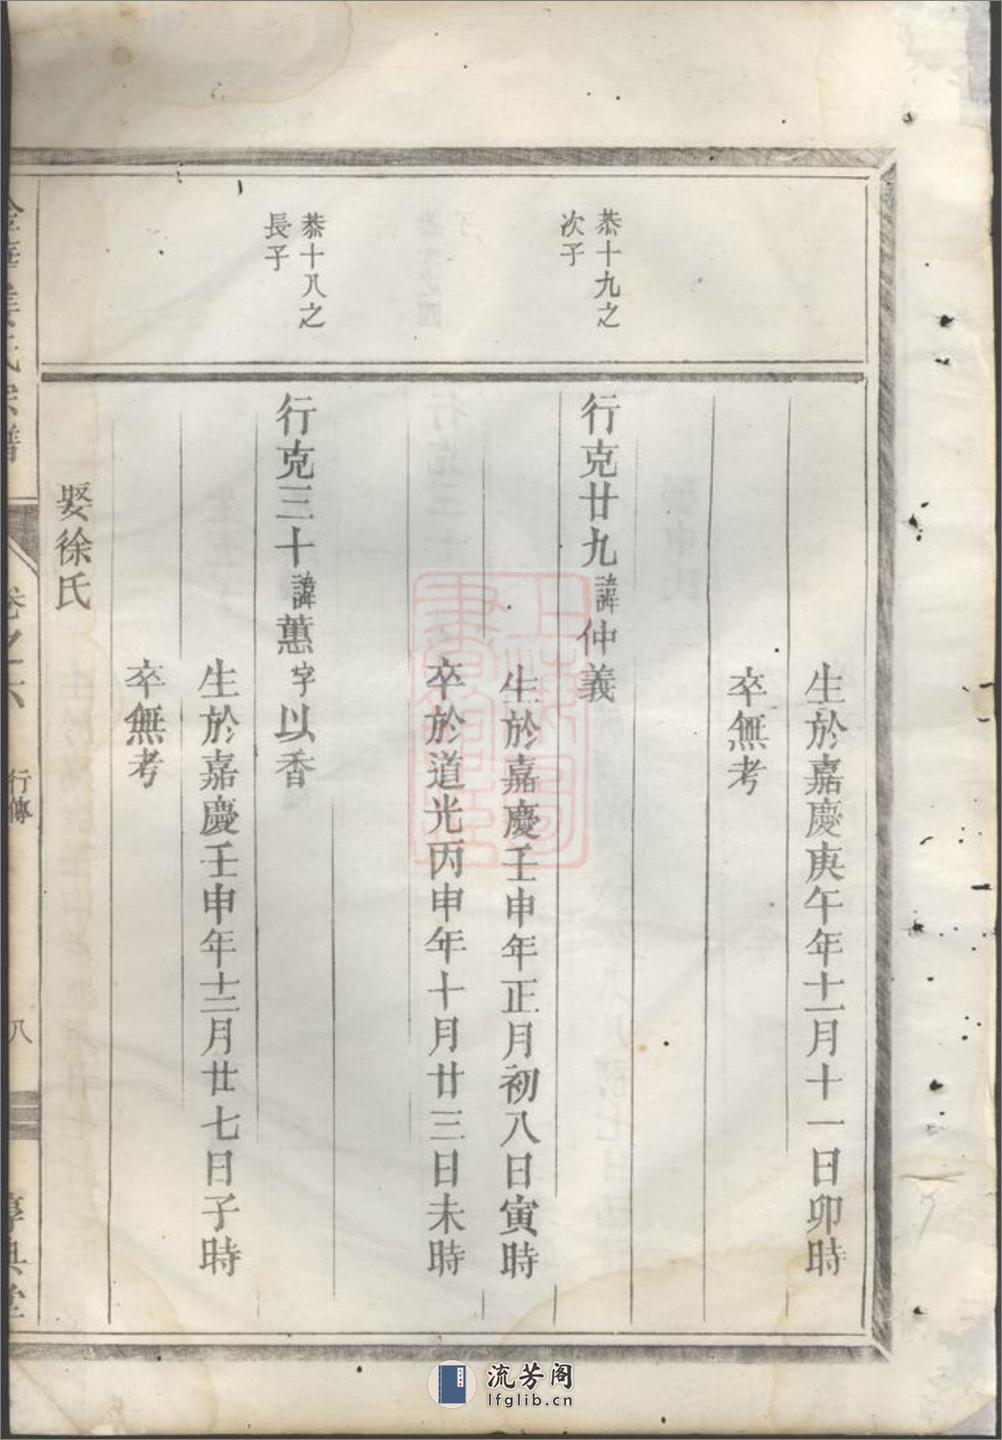 生於嘉慶庚午年十一月十一日卯時
卒無考
恭十九之
次子
行克廿九諱仲義
生於嘉慶壬申年正月初八日寅時
卒於道光丙申年十月廿三日未時
恭十八之
長子
行克三十諱蕙字以香
生於嘉慶壬申年十二月廿七日子時
卒無考
娶徐氏
卷之六 行傳 八
流芳阁
lfglib.cn